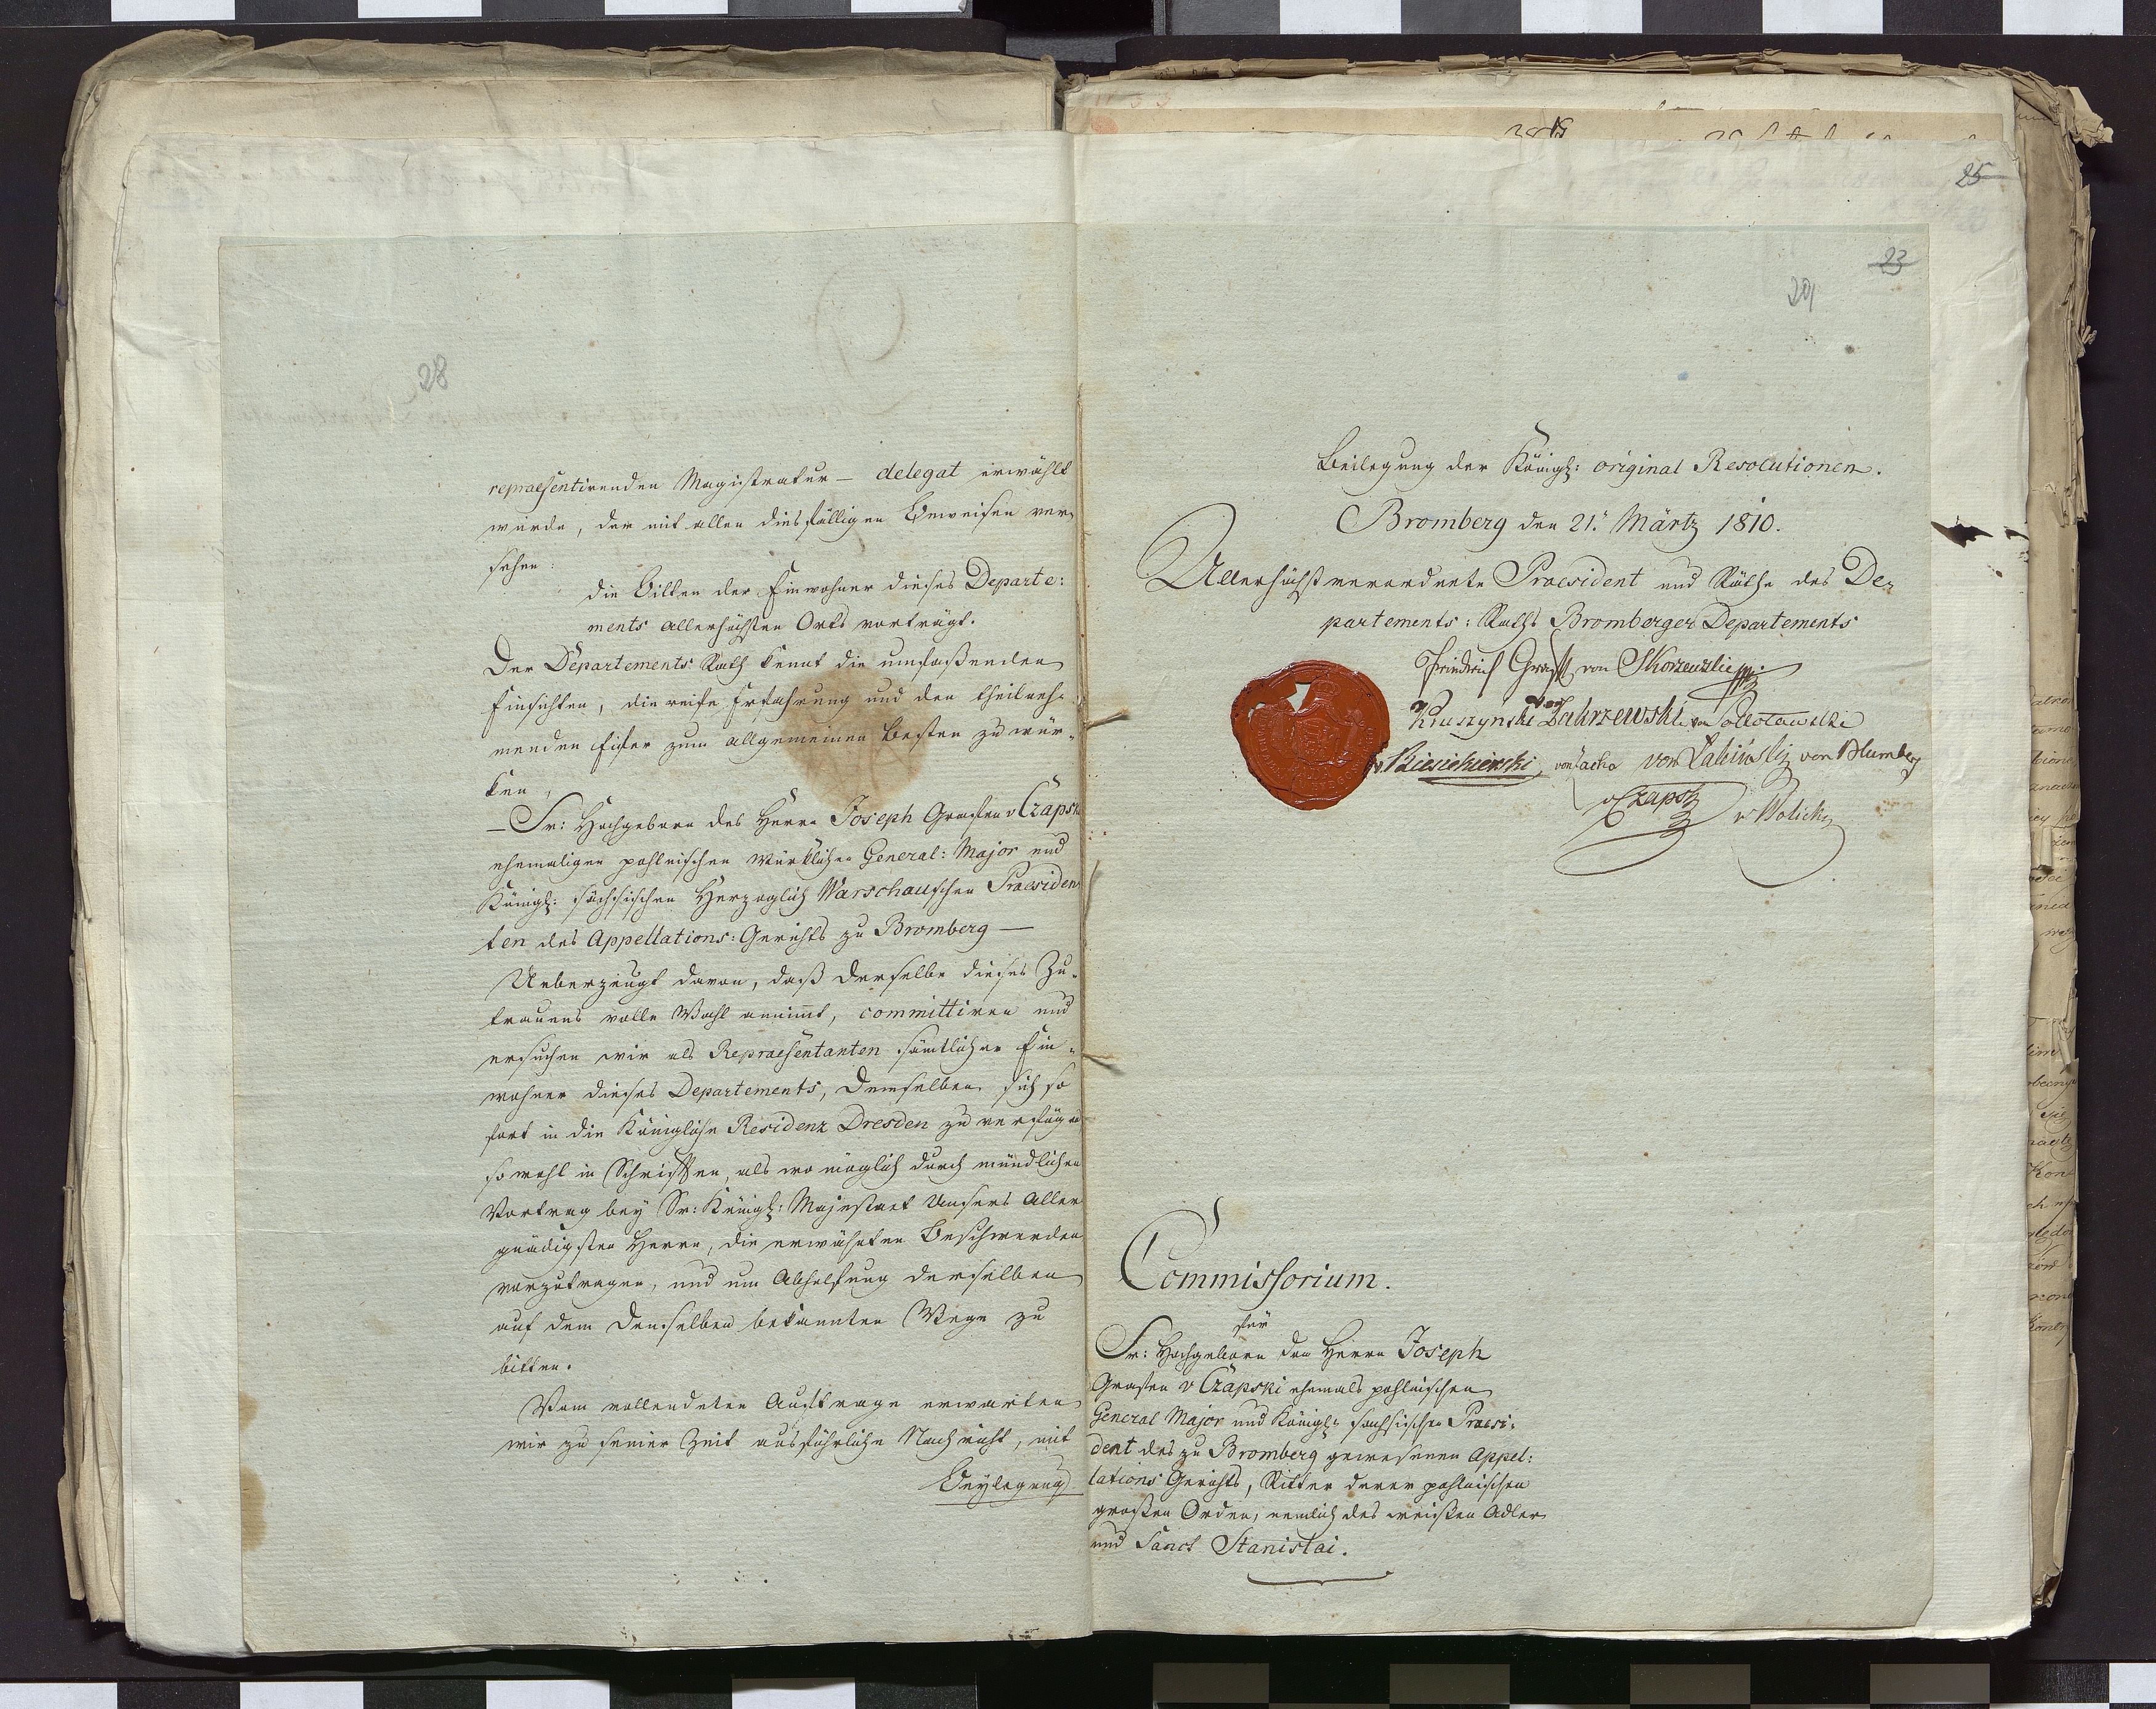 28
repraesentirenden Magistratur – delegat erwählt
würde, der mit allen diesfälligen Beweisen ver-
sehen:
die Bitten der Einwohner dieses Departe:
ments allerhöchsten Orts vorträgt.
Der Departements Rath kennt die umfaßenden
Einsichten, die reife Erfahrung und den theilneh-
menden Eifer zum allgemeinen Besten zu wür-
ken,
– Sr: Hochgeborn des Herrn Joseph Grafen v Czapski
ehemaligen pohlnischen würklichen General: Major und
Königl: sächsischen Herzoglich Warschauschen Praesiden
ten des Appellations: Gerichts zu Bromberg –
Ueberzeugt davon, daß derselbe dieses Zu-
trauens volle Wahl annimt, committiren und
ersuchen wir als Repraesentanten sämtlicher Ein-
wohner dieses Departements, denselben sich so
fort in die Königliche Residenz Dresden zu verfügen
so wohl in Schriften, als wo möglich durch mündlichen
Vortrag bey Sr: Königl: Majestaet Unsers Aller
gnädigsten Herrn, die erwähnten Beschwerden
vorzutragen, und um Abhelfung derselben
auf dem denselben bekannten Wege zu
bitten.
Vom vollendeten Auftrage erwarten
wir zu seiner Zeit ausführliche Nachricht, mit
Beylegung
25
23
29
Beilegung der Königl: original Resolutionen.
Bromberg den 21. Märtz 1810.
Allerhöchst verordnete Praesident und Räthe des De-
partements: Raths Bromberger Departements
Friedrich Graff von Skorzewski
v Kruszynski von Zakrzewski von
v. Kiesickierski von von von Blumberg
v Czapski v Wolicki
Commissorium.
für
Sr: Hochgeborn den Herrn Joseph
Grafen v Czapski ehemals pohlnischen
General Major und Königl: sächsischen Praesi:
dent des zu Bromberg gewesenen Appel:
lations Gerichts, Ritter derer pohlnischen
großen Orden, nemlich des weißen Adler
und Sanct Stanislai.